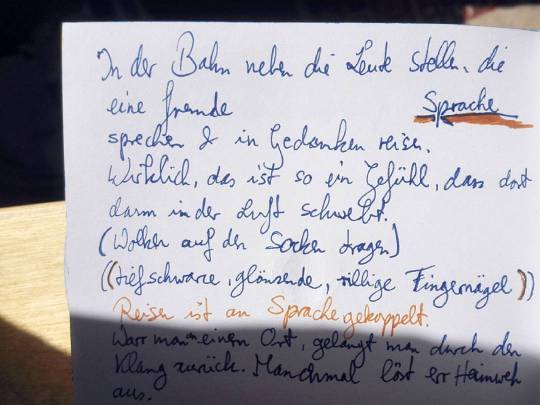 In der Bahn neben die Leute stellen, die
eine fremde Sprache
sprechen & in Gedanken reisen.
Wirklich, das ist so ein Gefühl, dass dort
dann in der Luft schwebt.
(Wolken auf den Socken tragen)
((tiefschwarze, glänzende, rillige Fingernägel))
Reisen ist an Sprache gekoppelt.
War man an einem Ort, gelangt man durch den
Klang zurück. Manchmal löst er Heimweh
aus.